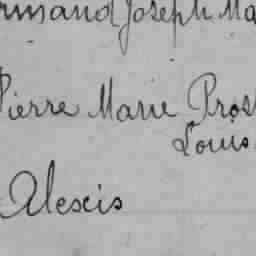 Armand Joseph Ma
Pierre Marie Pros
Louis
Alexis